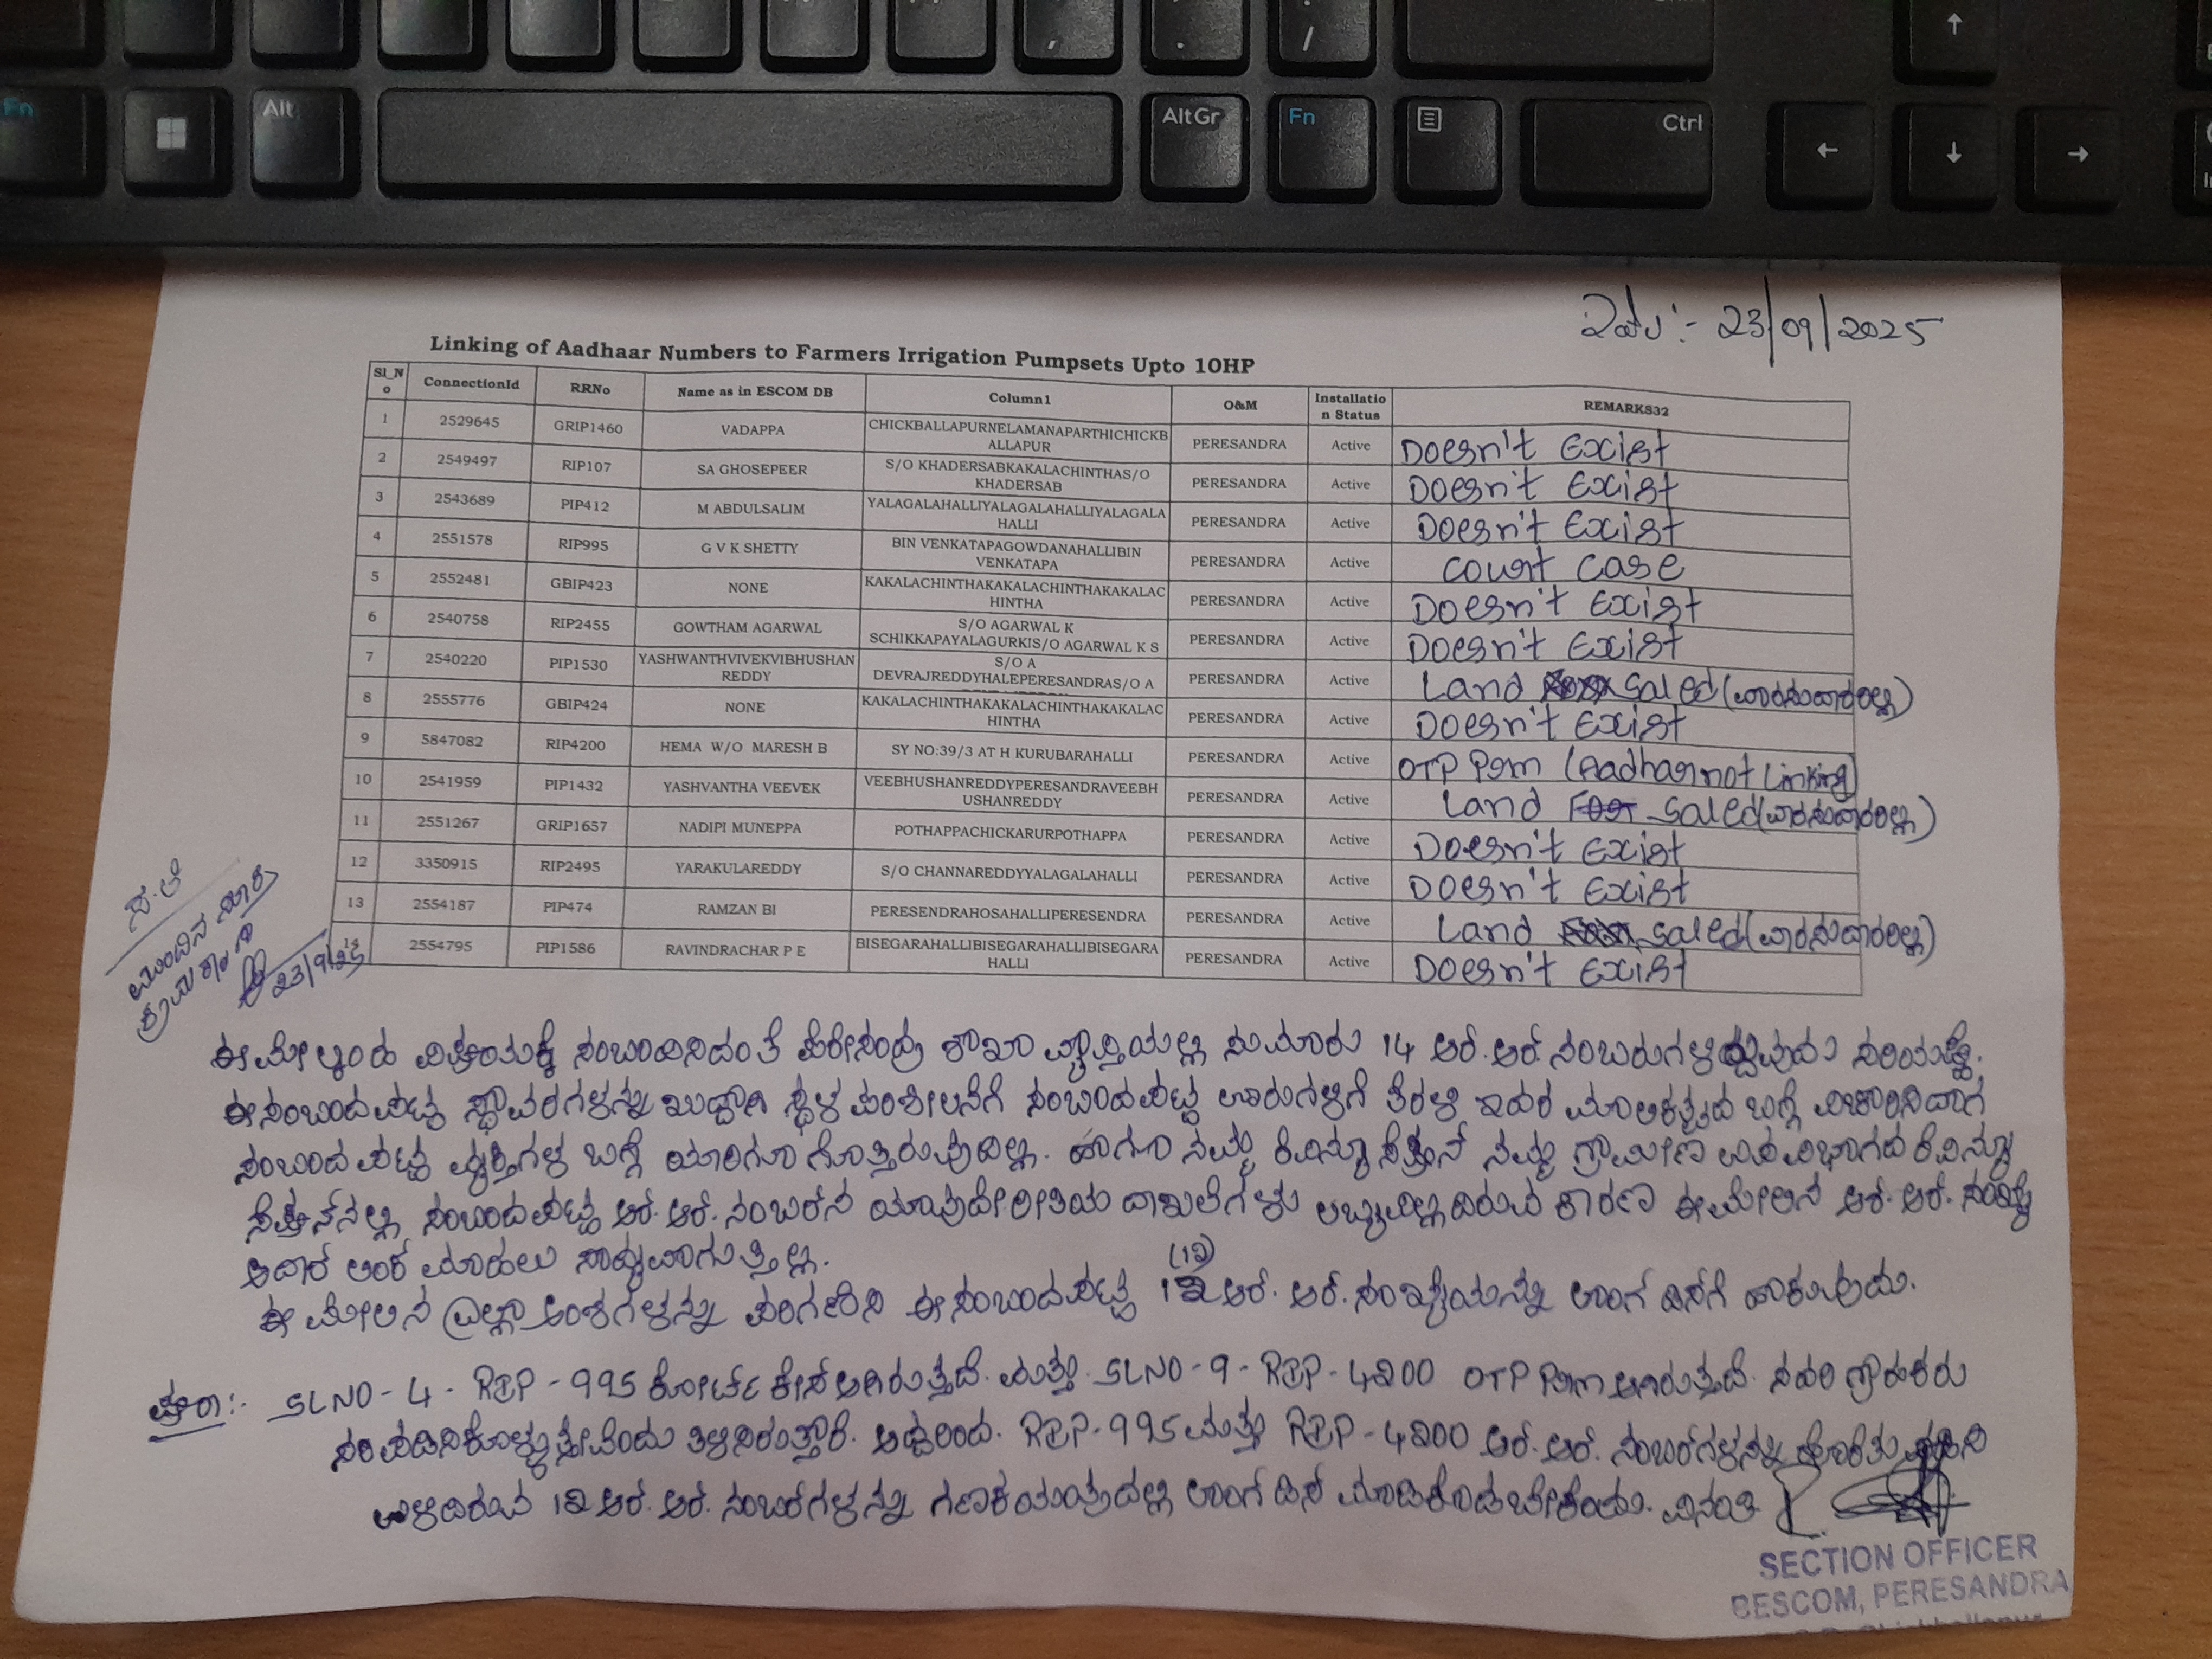 Fn
Alt
AltGr
Fn
Ctrl
, . /
← ↓ → ↑
23/09/2025
Linking of Aadhaar Numbers to Farmers Irrigation Pumpsets Upto 10HP
Sl_No ConnectionId RRNo Name as in ESCOM DB Column1 O&M Installation Status REMARKS32
1 2529645 GRIP1460 VADAPPA CHICKBALLAPURNELAMANAPARTHICHICKBALLAPUR PERESANDRA Active Doesn't Excist
2 2549497 RIP107 SA GHOSEPEER S/O KHADERSABKAKALACHINTHAS/O KHADERSAB PERESANDRA Active Doesn't Excist
3 2543689 PIP412 M ABDULSALIM YALAGALAHALLIYALAGALAHALLIYALAGALAHALLI PERESANDRA Active Doesn't Excist
4 2551578 RIP995 G V K SHETTY BIN VENKATAPAGOWDANAHALLIBIN VENKATAPA PERESANDRA Active Court Case
5 2552481 GBIP423 NONE KAKALACHINTHAKAKALACHINTHAKAKALACHINTHA PERESANDRA Active Doesn't Excist
6 2540758 RIP2455 GOWTHAM AGARWAL S/O AGARWAL K SCHIKKAPAYALAGURKIS/O AGARWAL K S PERESANDRA Active Doesn't Excist
7 2540220 PIP1530 YASHWANTHVIVEKVIBHUSHAN REDDY S/O A DEVRAJREDDYHALEPERESANDRAS/O A PERESANDRA Active Land saled (ವಾರಸುದಾರರಿಲ್ಲ)
8 2555776 GBIP424 NONE KAKALACHINTHAKAKALACHINTHAKAKALACHINTHA PERESANDRA Active Doesn't Excist
9 5847082 RIP4200 HEMA W/O MARESH B SY NO:39/3 AT H KURUBARAHALLI PERESANDRA Active OTP Psm (Aadhar not Linking)
10 2541959 PIP1432 YASHVANTHA VEEVEK VEEBHUSHANREDDYPERESANDRAVEEBHUSHANREDDY PERESANDRA Active Land saled (ವಾರಸುದಾರರಿಲ್ಲ)
11 2551267 GRIP1657 NADIPI MUNEPPA POTHAPPACHICKARURPOTHAPPA PERESANDRA Active Doesn't Excist
12 3350915 RIP2495 YARAKULAREDDY S/O CHANNAREDDYYALAGALAHALLI PERESANDRA Active Doesn't Excist
13 2554187 PIP474 RAMZAN BI PERESENDRAHOSAHALLIPERESENDRA PERESANDRA Active Land saled (ವಾರಸುದಾರರಿಲ್ಲ)
14 2554795 PIP1586 RAVINDRACHAR P E BISEGARAHALLIBISEGARAHALLIBISEGARAHALLI PERESANDRA Active Doesn't Excist
ಸ.ಲೆ
ಮುಂದಿನ
23/9/25
ಈ ಮೇಲ್ಕಂಡ ವಿಷಯಕ್ಕೆ ಸಂಬಂಧಿಸಿದಂತೆ ಪೆರೇಸಂದ್ರ ಶಾಖಾ ವ್ಯಾಪ್ತಿಯಲ್ಲಿ ಸುಮಾರು 14 ಆರ್.ಆರ್. ನಂಬರುಗಳಿದ್ದು ಸರಿಯಷ್ಟೆ.
ಈ ಸಂಬಂದಪಟ್ಟ ಸ್ಥಾವರಗಳನ್ನು ಖುದ್ದಾಗಿ ಸ್ಥಳ ಪರಿಶೀಲನೆಗೆ ಸಂಬಂದಪಟ್ಟ ಊರುಗಳಿಗೆ ತೆರಳಿ ಇದರ ಮಾಲಿಕತ್ವದ ಬಗ್ಗೆ ವಿಚಾರಿಸಿದಾಗ
ಸಂಬಂದಪಟ್ಟ ವ್ಯಕ್ತಿಗಳ ಬಗ್ಗೆ ಯಾರಿಗೂ ಗೊತ್ತಿರುವುದಿಲ್ಲ. ಹಾಗೂ ನಮ್ಮ ರೆವಿನ್ಯೂ ಸೆಕ್ಷನ್ ನಮ್ಮ ಗ್ರಾಮೀಣ ಉಪವಿಭಾಗದ ರೆವಿನ್ಯೂ
ಸೆಕ್ಷನ್‌ನಲ್ಲಿ ಸಂಬಂದಪಟ್ಟ ಆರ್.ಆರ್. ನಂಬರಿನ ಯಾವುದೇ ರೀತಿಯ ದಾಖಲೆಗಳು ಲಭ್ಯವಿಲ್ಲದಿರುವ ಕಾರಣ ಈ ಮೇಲಿನ ಆರ್.ಆರ್. ಸಂಖ್ಯೆ
ಆದಾರ್ ಲಿಂಕ್ ಮಾಡಲು ಸಾಧ್ಯವಾಗುತ್ತಿಲ್ಲ.
ಈ ಮೇಲಿನ ಎಲ್ಲಾ ಅಂಶಗಳನ್ನು ಪರಿಗಣಿಸಿ ಈ ಸಂಬಂದಪಟ್ಟ 12 (12) ಆರ್.ಆರ್. ಸಂಖ್ಯೆಯನ್ನು ಲಾಂಗ್ ಡಿಸ್‌ಗೆ ಹಾಕುವುದು.
SLNO-4- RIP-995 ಕೋರ್ಟ್ ಕೇಸ್ ಆಗಿರುತ್ತದೆ. ಮತ್ತು SLNO-9-RIP-4200 OTP Psm ಆಗಿರುತ್ತದೆ. ಸದರಿ ಗ್ರಾಹಕರು
ಸರಿಪಡಿಸಿಕೊಳ್ಳುತ್ತೇವೆಂದು ತಿಳಿಸಿರುತ್ತಾರೆ. ಆದ್ದರಿಂದ. RIP-995 ಮತ್ತು RIP-4200 ಆರ್.ಆರ್. ನಂಬರ್‌ಗಳನ್ನು ಹೊರತು ಪಡಿಸಿ
ಉಳಿದಿರುವ 12 ಆರ್.ಆರ್. ನಂಬರ್‌ಗಳನ್ನು ಗಣಕಯಂತ್ರದಲ್ಲಿ ಲಾಂಗ್ ಡಿಸ್ ಮಾಡಿಕೊಡಬೇಕೆಂದು. ವಿನಂತಿ
SECTION OFFICER
BESCOM, PERESANDRA